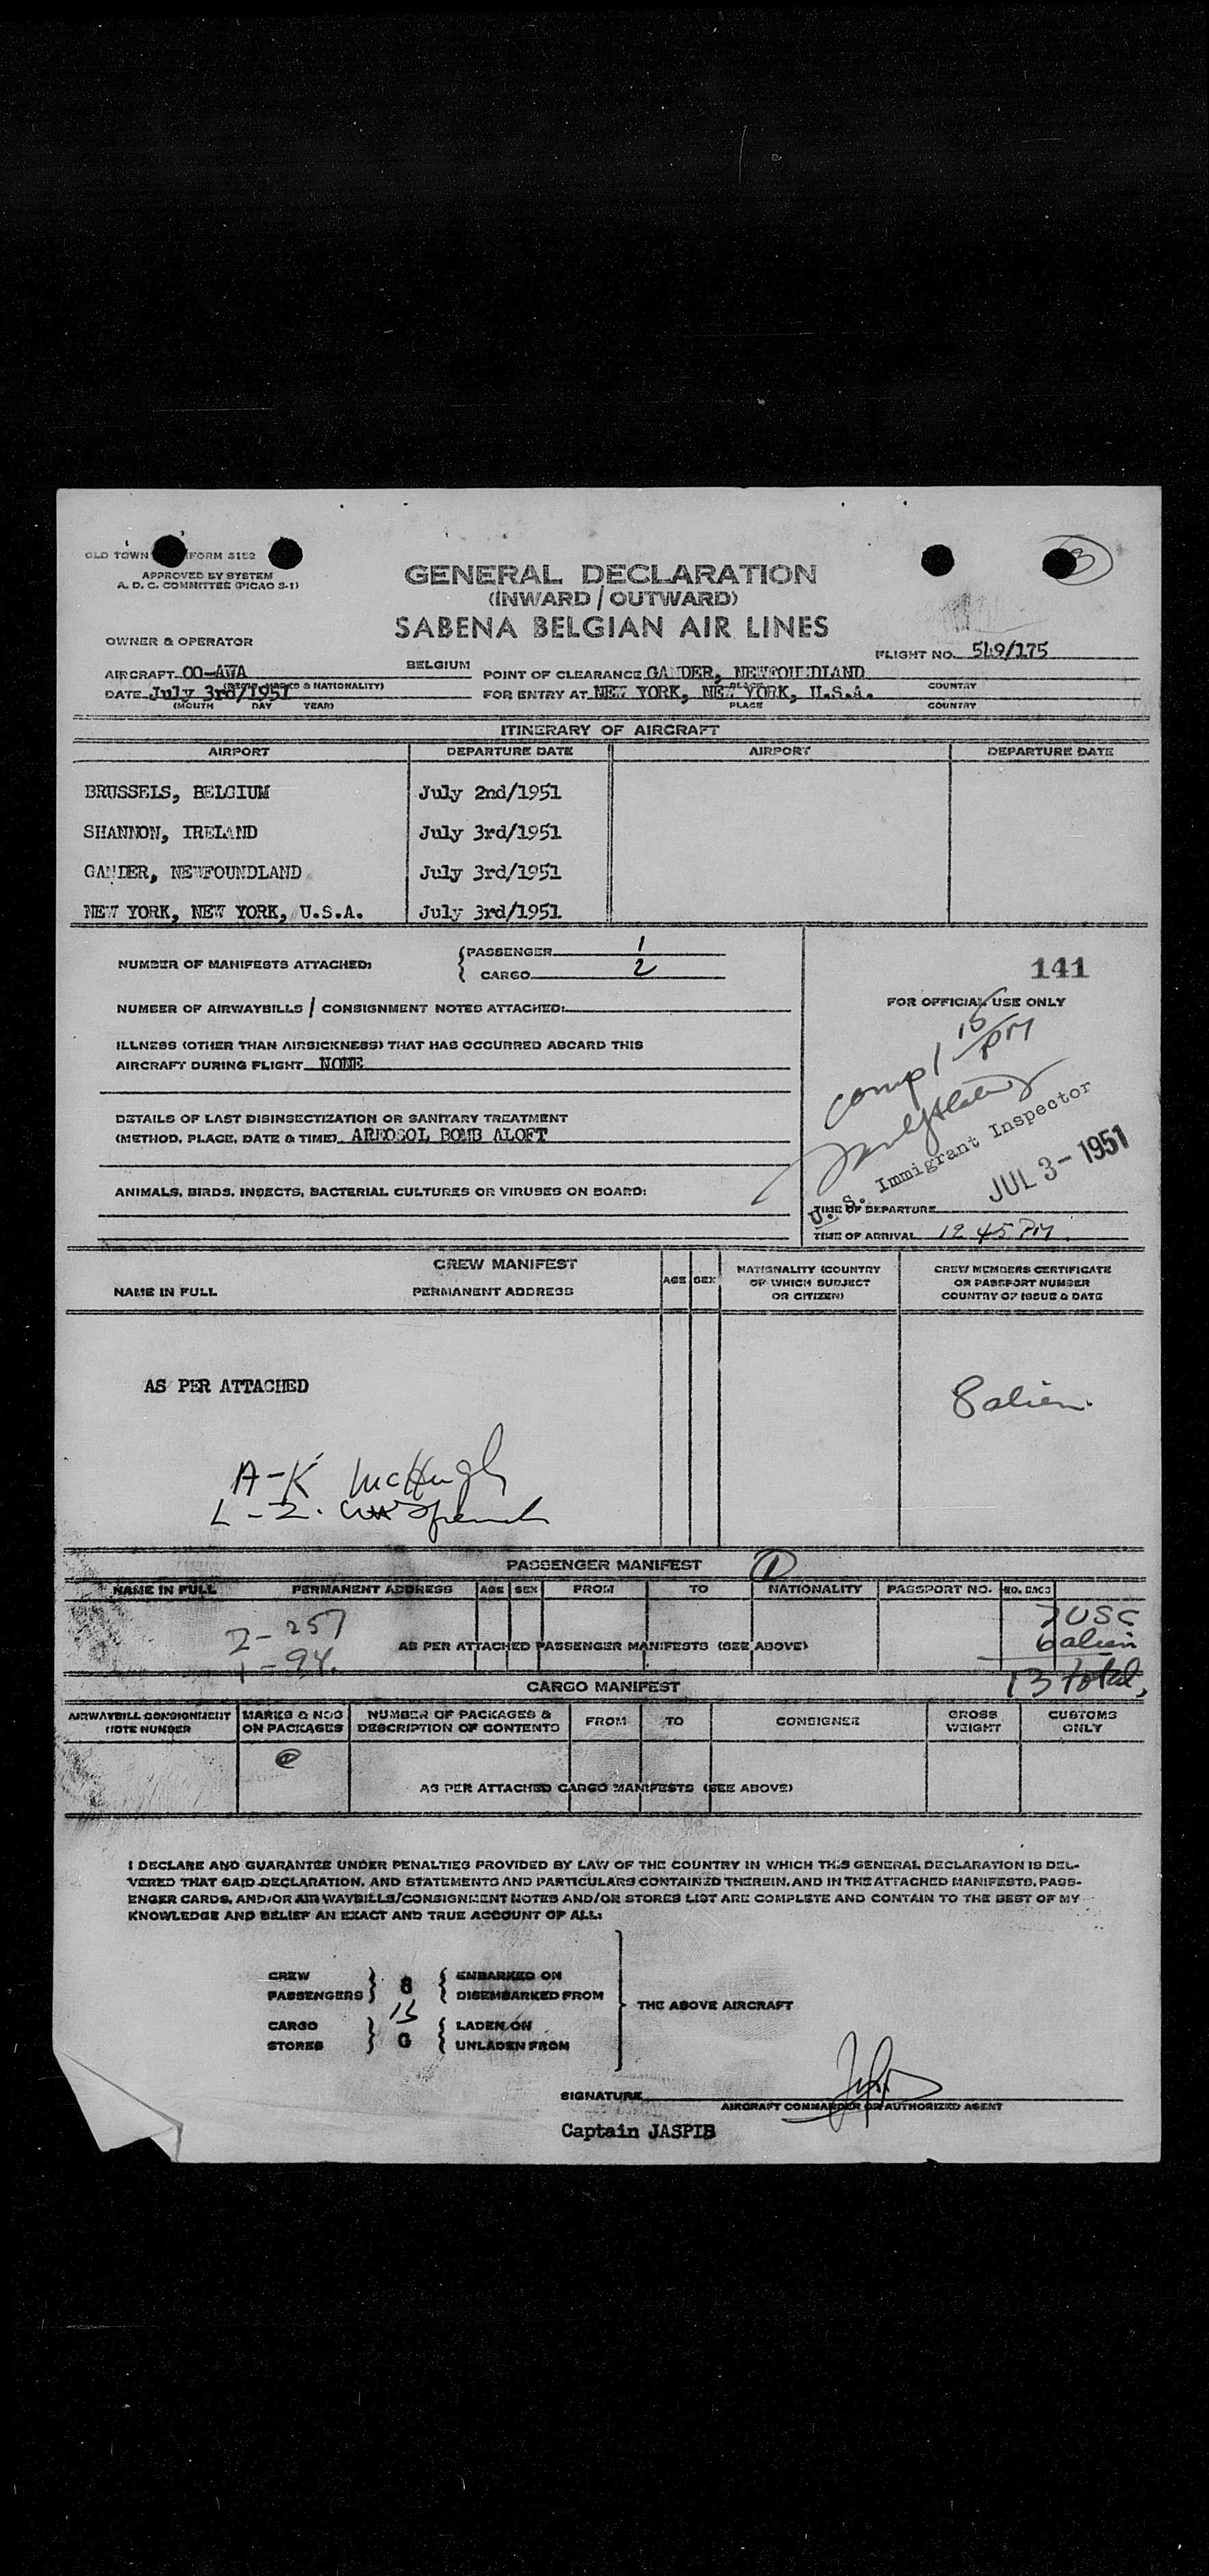 OLD TOWN FORM 3152
APPROVED BY SYSTEM
A. D. C. COMMITTEE (PICAO S-1)
3
GENERAL DECLARATION
(INWARD / OUTWARD)
SABENA BELGIAN AIR LINES
OWNER & OPERATOR
FLIGHT NO. 549/175
AIRCRAFT OO-AWA BELGIUM POINT OF CLEARANCE GANDER, NEWFOUNDLAND
& NATIONALITY) COUNTRY
DATE July 3rd/1951 FOR ENTRY AT NEW YORK, NEW YORK, U.S.A.
(MONTH DAY YEAR) PLACE COUNTRY
ITINERARY OF AIRCRAFT
AIRPORT DEPARTURE DATE AIRPORT DEPARTURE DATE
BRUSSELS, BELGIUM July 2nd/1951
SHANNON, IRELAND July 3rd/1951
GANDER, NEWFOUNDLAND July 3rd/1951
NEW YORK, NEW YORK, U.S.A. July 3rd/1951
NUMBER OF MANIFESTS ATTACHED: PASSENGER 1
CARGO 2
141
NUMBER OF AIRWAYBILLS / CONSIGNMENT NOTES ATTACHED:
FOR OFFICIAL USE ONLY
ILLNESS (OTHER THAN AIRSICKNESS) THAT HAS OCCURRED ABOARD THIS
AIRCRAFT DURING FLIGHT NONE
comp 1 15 PM
DETAILS OF LAST DISINSECTIZATION OR SANITARY TREATMENT
(METHOD, PLACE, DATE & TIME) AREOSOL BOMB ALOFT
U. S. Immigrant Inspector
JUL 3 - 1951
ANIMALS, BIRDS, INSECTS, BACTERIAL CULTURES OR VIRUSES ON BOARD:
TIME OF DEPARTURE
TIME OF ARRIVAL 12 45 PM.
CREW MANIFEST
NAME IN FULL PERMANENT ADDRESS AGE SEX NATIONALITY (COUNTRY OF WHICH SUBJECT OR CITIZEN) CREW MEMBERS CERTIFICATE OR PASSPORT NUMBER COUNTRY OF ISSUE & DATE
AS PER ATTACHED
8 alien.
A-K McHugh
L-Z.
PASSENGER MANIFEST 1
NAME IN FULL PERMANENT ADDRESS AGE SEX FROM TO NATIONALITY PASSPORT NO. NO. BAGS
7 USC
2-257
AS PER ATTACHED PASSENGER MANIFESTS (SEE ABOVE)
6 alien
1-94.
13 total,
CARGO MANIFEST
AIRWAYBILL CONSIGNMENT NOTE NUMBER MARKS & NOS ON PACKAGES NUMBER OF PACKAGES & DESCRIPTION OF CONTENTS FROM TO CONSIGNEE GROSS WEIGHT CUSTOMS ONLY
AS PER ATTACHED CARGO MANIFESTS (SEE ABOVE)
I DECLARE AND GUARANTEE UNDER PENALTIES PROVIDED BY LAW OF THE COUNTRY IN WHICH THIS GENERAL DECLARATION IS DEL-
VERED THAT SAID DECLARATION, AND STATEMENTS AND PARTICULARS CONTAINED THEREIN, AND IN THE ATTACHED MANIFESTS, PASS-
ENGER CARDS, AND/OR AIR WAYBILLS/CONSIGNMENT NOTES AND/OR STORES LIST ARE COMPLETE AND CONTAIN TO THE BEST OF MY
KNOWLEDGE AND BELIEF AN EXACT AND TRUE ACCOUNT OF ALL:
CREW 8 EMBARKED ON
PASSENGERS 13 DISEMBARKED FROM
THE ABOVE AIRCRAFT
CARGO LADEN ON
STORES G UNLADEN FROM
SIGNATURE
AIRCRAFT COMMANDER OR AUTHORIZED AGENT
Captain JASPIS